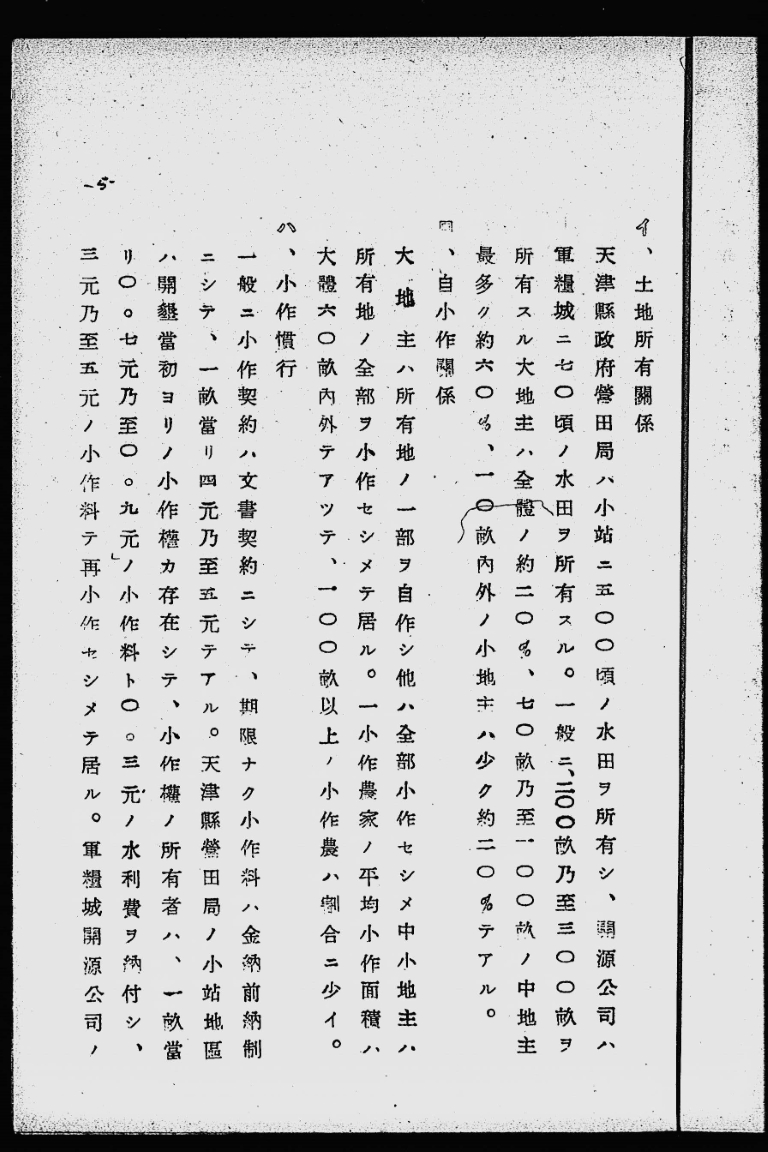 イ、土地所有關係
天津縣政府營田局ハ小站ニ五〇〇頃ノ水田ヲ所有シ、開源公司ハ
軍糧城ニ七〇頃ノ水田ヲ所有スル。一般ニ、二〇〇畝乃至三〇〇畝ヲ
所有スル大地主ハ全體ノ約二〇%、七〇畝乃至一〇〇畝ノ中地主
最多ク約六〇%、一〇畝內外ノ小地主ハ少ク約二〇%テアル。
ロ、自小作關係
大地主ハ所有地ノ一部ヲ自作シ他ハ全部小作セシメ中小地主ハ
所有地ノ全部ヲ小作セシメテ居ル。一小作農家ノ平均小作面積ハ
大體六〇畝內外テアツテ、一〇〇畝以上ノ小作農ハ割合ニ少イ。
ハ、小作慣行
一般ニ小作契約ハ文書契約ニシテ、期限ナク小作料ハ金納前納制
ニシテ、一畝當リ四元乃至五元テアル。天津縣營田局ノ小站地區
ハ開墾當初ヨリノ小作權カ存在シテ、小作權ノ所有者ハ、一畝當
リ〇。七元乃至〇。九元ノ小作料ト〇。三元ノ水利費ヲ納付シ、
三元乃至五元ノ小作料テ再小作セシメテ居ル。軍糧城開源公司ノ
-5-